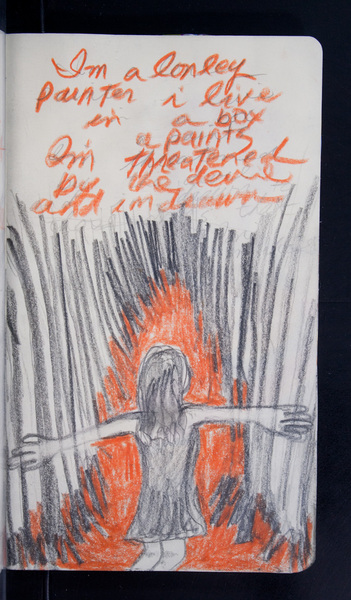 Im a lonley
painter i live
in a box
a paints
Im threatened
by the devil
and im drawn